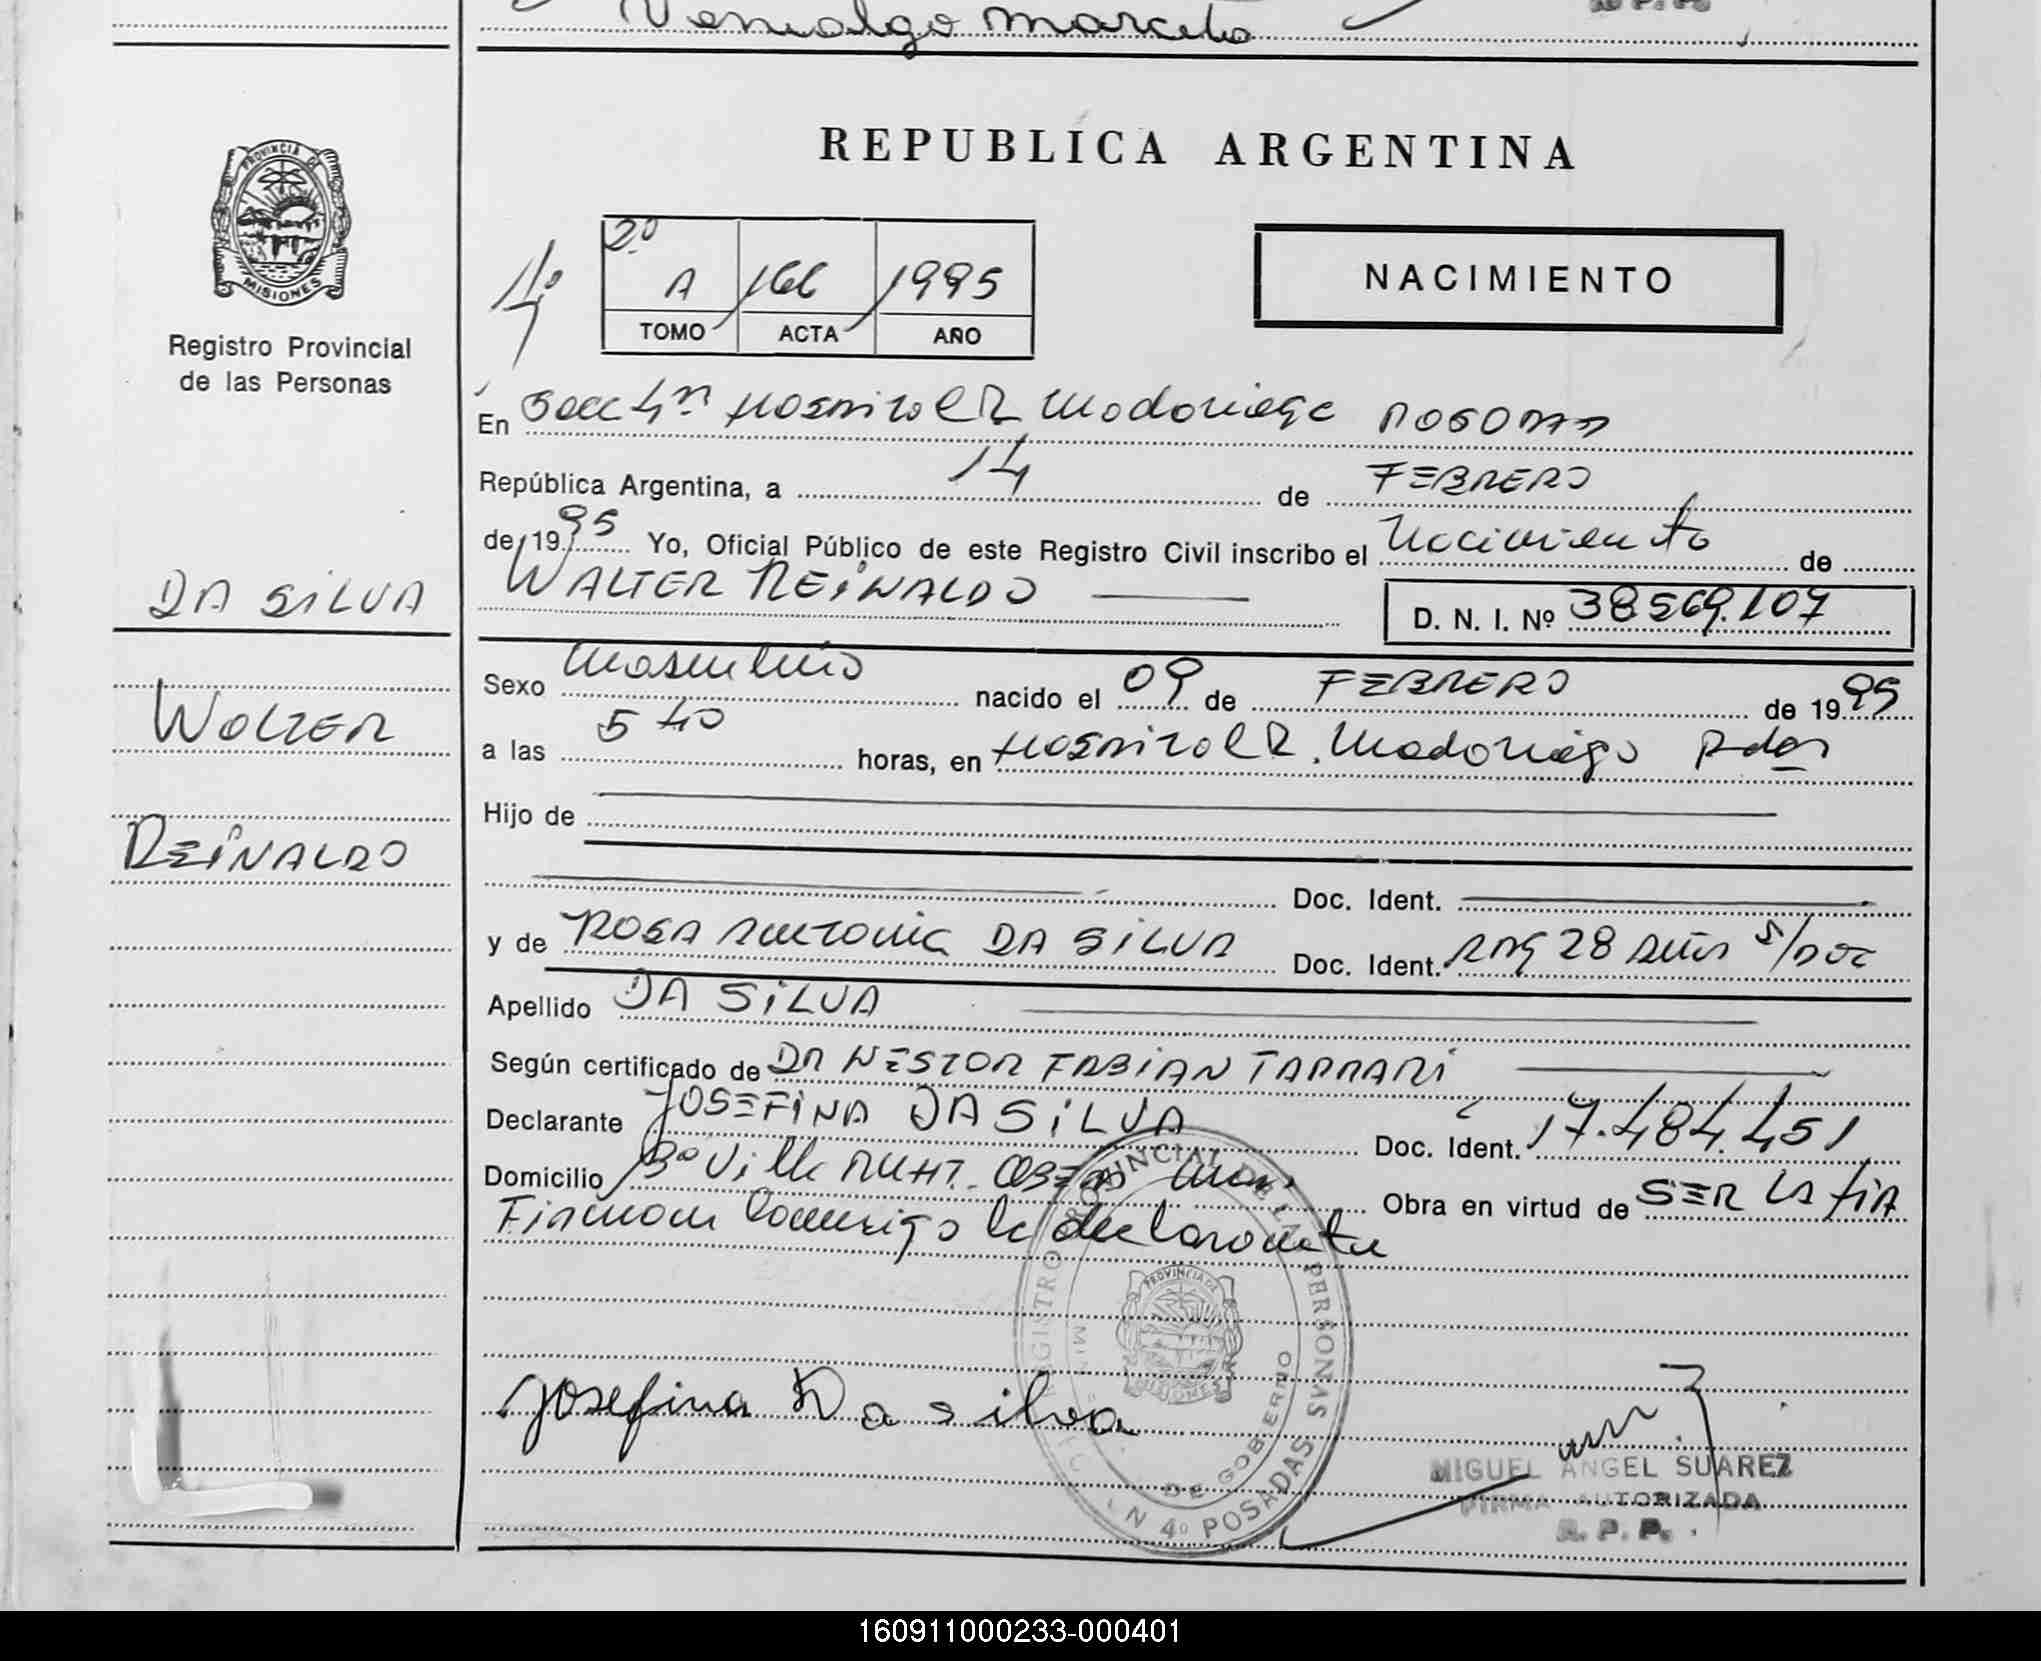 Venialgo Marcelo
PROVINCIA DE
MISIONES
Registro Provincial
de las Personas
REPUBLICA ARGENTINA
4º
2º
A 166 1995
TOMO ACTA AÑO
NACIMIENTO
En Secc 4ta Hospital R Madariaga POSADAS
República Argentina, a 14 de FEBRERO
de 1995 Yo, Oficial Público de este Registro Civil inscribo el Nacimiento de
WALTER REINALDO
D. N. I. Nº 38569.107
DA SILVA
WALTER
REINALDO
Sexo Masculino nacido el 09 de FEBRERO de 1995
a las 5 40 horas, en Hospital R. Madariaga Pdas
Hijo de
Doc. Ident.
y de ROSA Antonia DA SILVA Doc. Ident. 28 Años s/DOC
Apellido DA SILVA
Según certificado de DR NESTOR FABIAN
Declarante JOSEFINA DA SILVA Doc. Ident. 17.484.451
Domicilio Bº Villa Obra en virtud de SER LA TIA
Firman Conmigo la declarante
REGISTRO PROVINCIAL DE LAS PERSONAS
PROVINCIA DE
MISIONES
DE GOBIERNO
N 4º POSADAS
Josefina Da silva
MIGUEL ANGEL SUAREZ
FIRMA AUTORIZADA
R. P. P.
160911000233-000401